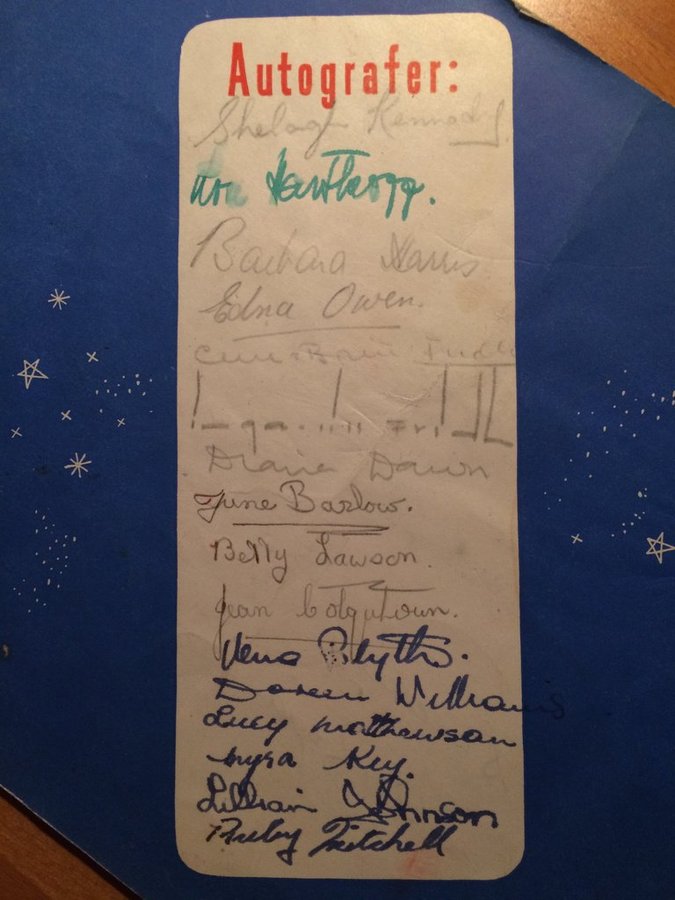 Autografer:
Shelagh Kennedy.
Barbara Harris
Edna Owen.
Diana Dawn
June Barlow.
Betty Lawson.
Jean Colquhoun.
Vera Blyth.
Doreen Williams
Lucy Matthewson
Myra Key.
Lillian Johnson
Ruby Mitchell